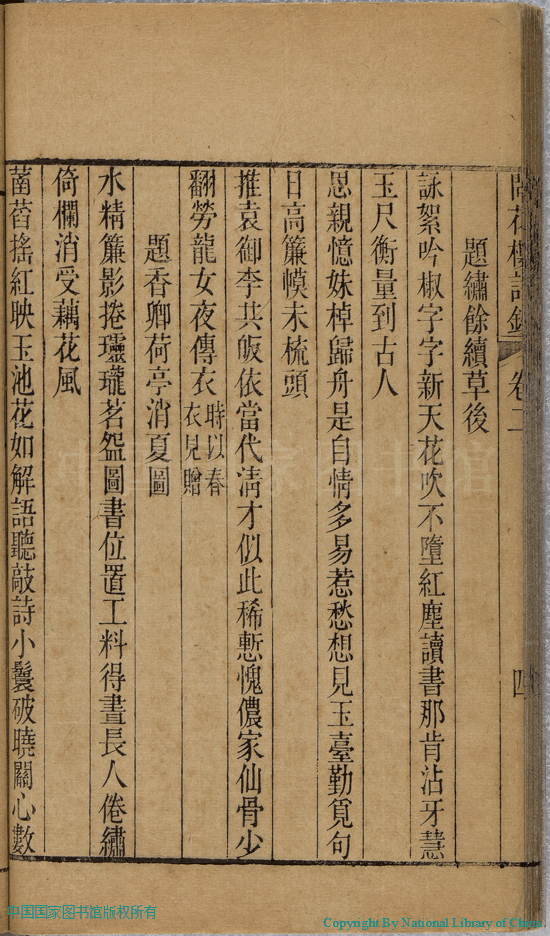 花樓詩鈔 卷二 四
題繡餘續草後
詠絮吟椒字字新天花吹不墮紅塵讀書那肯沾牙慧
玉尺衡量到古人
思親憶妹棹歸舟是自情多易惹愁想見玉臺勤覓句
日高簾幙未梳頭
推袁御李共皈依當代清才似此稀慙愧儂家仙骨少
翻勞龍女夜傳衣時以春衣見贈
題香卿荷亭消夏圖
水精簾影捲瓏茗盌圖書位置工料得晝長人倦繡
倚欄消受藕花風
菡萏搖紅映玉池花如解語聽敲詩小鬟破曉關心數
中国国家图书馆版权所有
Copyright By National Library of China.